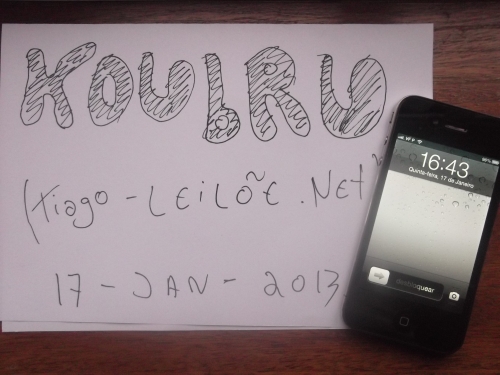 KOUBRU
(Tiago - LEiLÕE.NET
17 - JAN - 2013
VF P
16:43
Quinta-feira, 17 de Janeiro
desbloquear